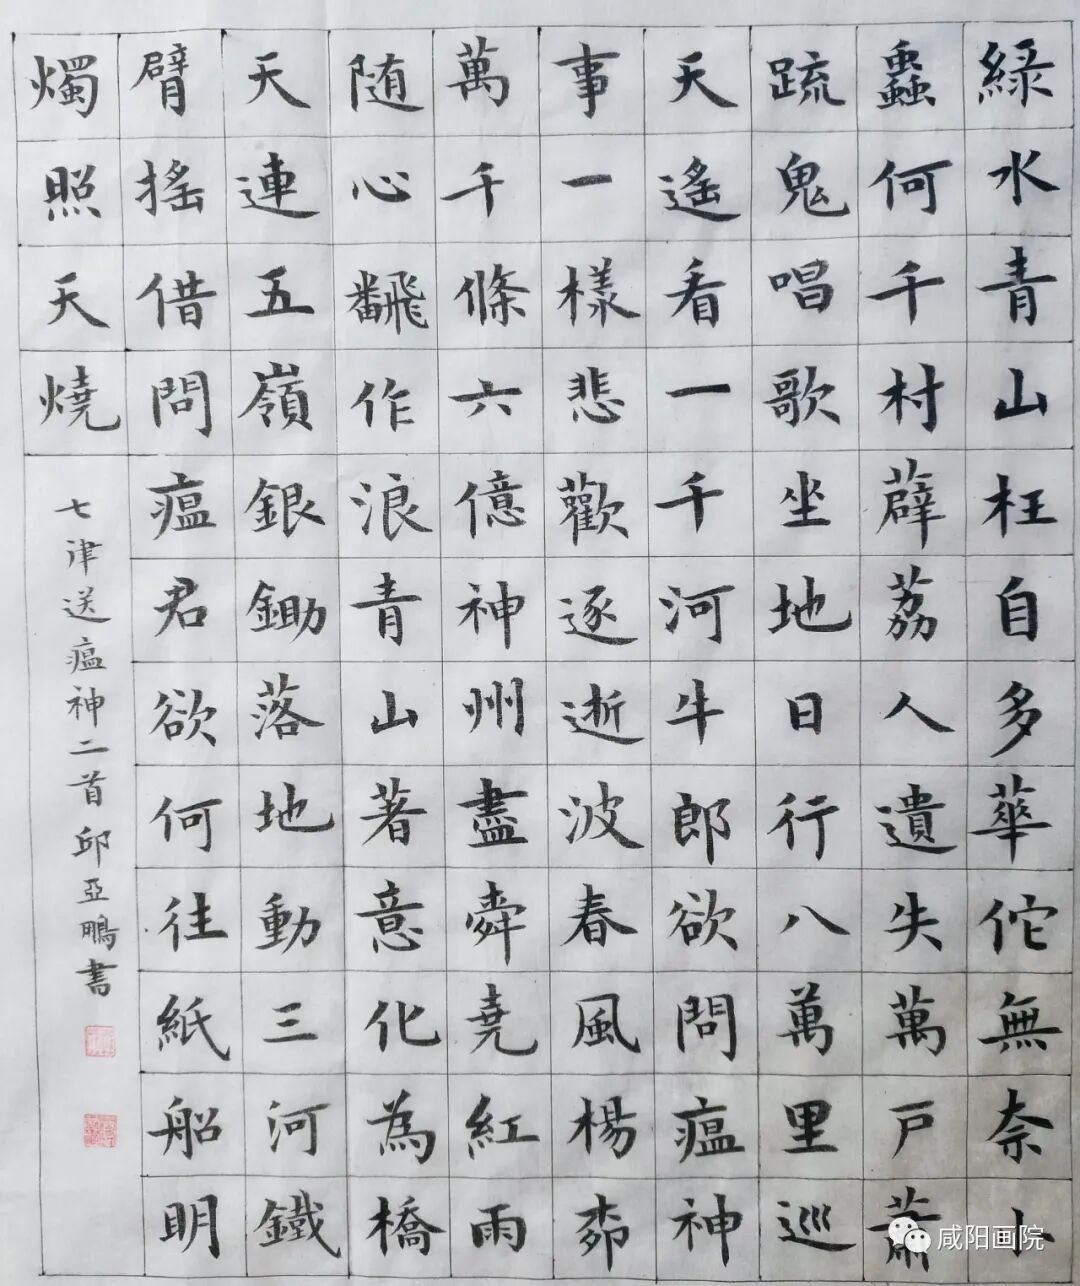 綠水青山枉自多華佗無奈小
蟲何千村薜荔人遺失萬戶蕭
疏鬼唱歌坐地日行八萬里巡
天遙看一千河牛郎欲問瘟神
事一樣悲歡逐逝波春風楊柳
萬千條六億神州盡舜堯紅雨
随心飜作浪青山著意化為橋
天連五嶺銀鋤落地動三河鐵
臂搖借問瘟君欲何往紙船明
燭照天燒
七津送瘟神二首 邱亞鵬書
咸阳画院